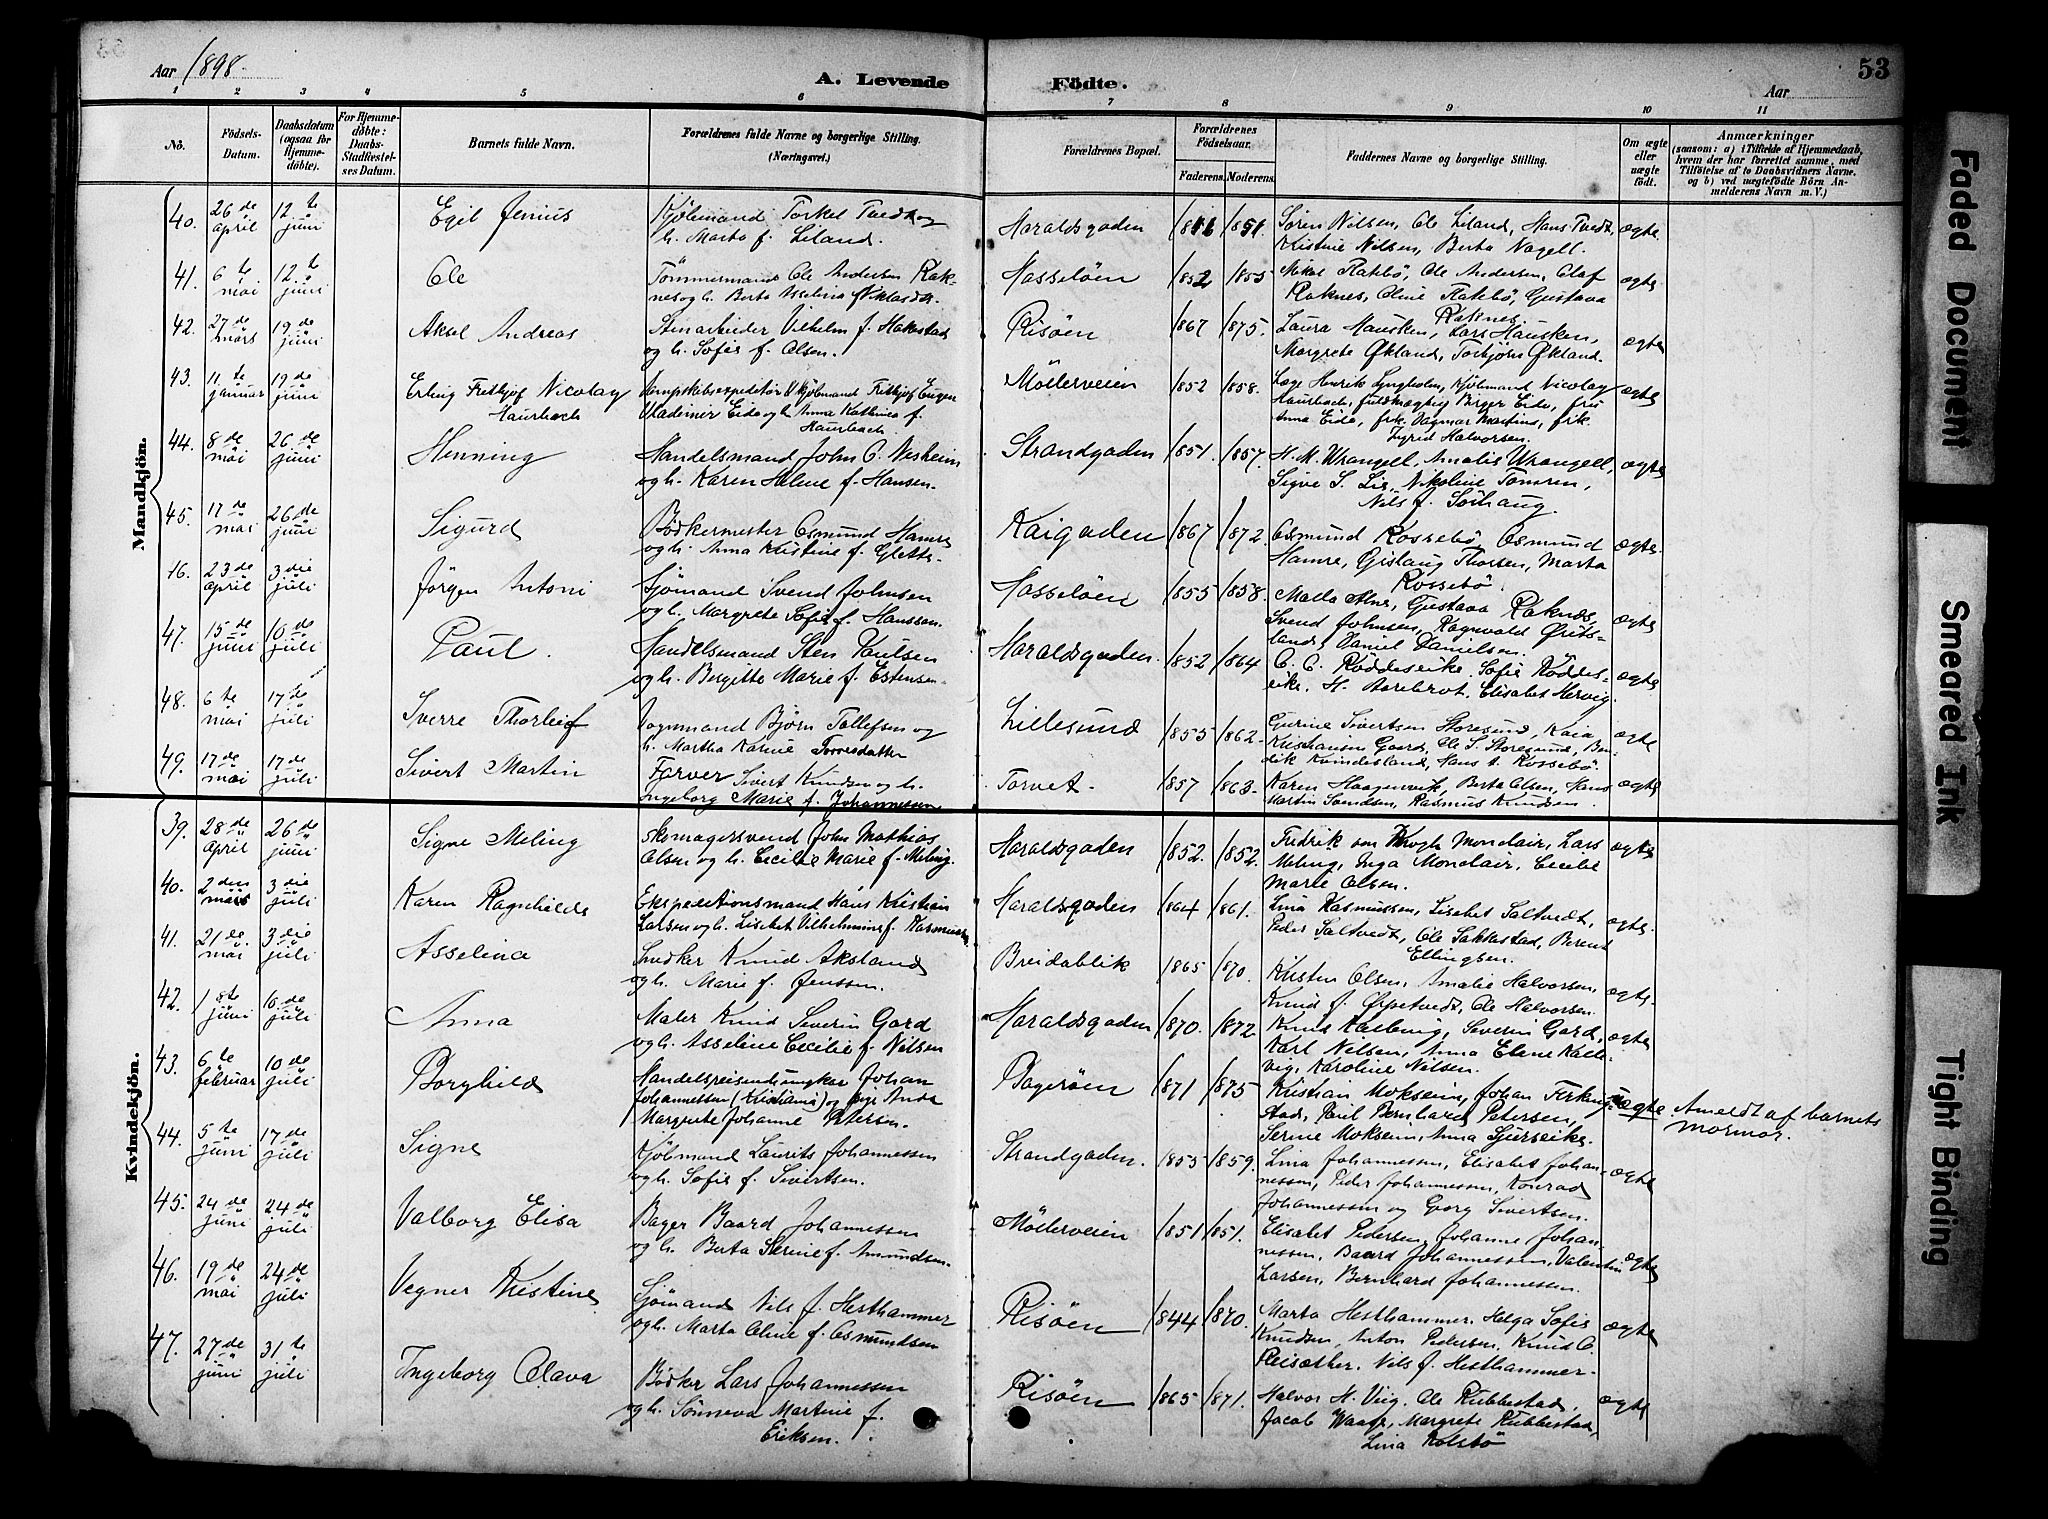 Aar 1898. A. Levende Födte. Aar 53
1 2 3 4 5 6 7 8 9 10 11
No. Födsels-Datum. Daabsdatum (ogsaa for Hjemme-döbte). For Hjemme-döbte: Daabs-Stadfæstel-ses Datum. Barnets fulde Navn. Forældrenes fulde Navne og borgerlige Stilling. (Næringsvei.) Forældrenes Bopæl. Forældrenes Födselsaar. Faderens. Moderens. Faddernes Navne og borgerlige Stilling. Om ægte eller uægte födt. Anmærkninger (saasom: a) i Tilfælde af Hjemmedaab, hvem der har forrettet samme, med Tilföielse af to Daabsvidners Navne. og b) ved uægtefödte Börn An-melderens Navn m. V.)
Mandkjön.
40. 26de april 12te juni Egil Jenius Kjöbmand Torkel Tvedt og h. Marta f. Eiland. Haraldsgaden 1851. Sören Nilsen, Ole Eiland, Hans Tvedt, Kristine Nilsen, Berta Nagell. ægte.
41. 6te mai 12te juni Ole Tömmermand Ole Andersen Rak-nes og h. Berta Asselina Niklasdtr. Hasselöen 1852 1855 Mikal Flatebö, Ole Andersen, Olaf Raknes, Oline Flatebö, Gustava Raknes. ægte
42. 27de mars 19de juni Aksel Andreas Stenarbeider Vilhelm f. Hakestad og h. Sofie f. Olsen. Risöen 1867 1875. Laura Hausken, Lars Hausken, Margrete Økland, Torbjörn Økland. ægte
43. 11te januar 19de juni Erling Fredthjof Nicolay Haurbach Dampskibsexpeditör & kjöbmand Fridthjof Eugen Wladimir Eide og h. Anna Kathrine f. Haurbach. Möllerveien 1852 1858. Læge Henrik Lyngholm, Kjöbmand Nicolay Haurbach, fuldmægtig Birger Eide, fru Anna Eide, frk. Dagmar Martins, frk. Ingrid Halvorsen. ægte
44. 8de mai 26de juni Henning Handelsmand John C. Nesheim og h. Karen Helene f. Hansen. Strandgaden 1851. 1857. H. M. Wrangell, Amalie Wrangell, Sigve S. Lie, Nikoline Tomren, Nils J. Sörhaug. ægte
45. 17de mai 26de juni Sigurd Bödkermester Osmund Hamre og h. Anna Kristine f. Glette. Kaigaden 1867 1872. Osmund Rossebö, Osmund Hamre, Gislaug Thorsen, Marta Rossebö. ægte.
16. 23de april 3die juli Jörgen Antoni Sjömand Svend Johnsen og h. Margrete Sofie f. Hanssen. Hasselöen 1855 1858. Malla Alne, Gustava Raknes, Svend Johnsen, Ragnvald Øvits-land, Daniel Danielsen. ægte
47. 15de juni 10de juli Paul. Handelsmand Sten Paulsen og h. Birgitte Marie f. Estensen. Haraldsgaden. 1852 1864 C. C. Röddeseike, Sofie Röddes-eike, H. Aarebrot, Elisabet Hervig. ægte
48. 6te mai 17de juli Sverre Thorleif Vognmand Björn Tollefsen og h. Martha Karine Torresdatter Lillesund 1855 1862. Gurine Sivertsen Storesund, Kaia Kristiansen Gaard, Ole S. Storesund, Ben-dik Kvindesland, Hans A. Rossebö. ægte
49. 17de mai 17de juli Sivert Martin Farver Sivert Knudsen og h. Ingeborg Marie f. Johannessen Torvet. 1857 1863. Karen Haagensvik, Berta Olsen, Hans Martin Samdsen, Rasmus Knudsen. ægte
Kvindekjön.
39. 28de april 26de juni Signe Meling Skomagersvend John Mathias Olsen og h. Cecilie Marie f. Meling. Haraldsgaden 1852. 1852. Fredrik von Krogh Monclair, Lars Meling, Inga Monclair, Cecilie Marie Olsen. ægte
40. 2den mars 3die juli Karen Ragnhilde Ekspeditionsmand Hans Kristian Larsen og h. Lisebet Vilhelmine f. Rasmussen Haraldsgaden 1864 1861. Lina Rasmussen, Lisebet Saltvedt, Peder Saltvedt, Ole Sakkestad, Berent Ellingsen. ægte.
41. 21de mai 3die juli Asselina Snedker Knud Aksland og h. Marie f. Jenssen. Breidablik 1865 1870. Kirsten Olsen, Amalie Halvorsen, Knud J. Ørpetvedt, Ole Halvorsen. ægte.
42. 18te juni 10de juli Anna Maler Knud Severin Gard og h. Asseline Cecilie f. Nilsen Haraldsgaden 1870. 1872. Knud Kallevig, Severin Gard, Karl Nilsen, Anna Elene Kalle-vig, Karoline Nilsen. ægte
43. 6te februar 10de juli Borghild Handelsreisende ungkar Johan Johannessen (Kristiania) og pige Anda Margrete Johanne Petersen. Bageröen 1871 1875 Kristian Moksheim, Johan Firking-stad, Emil Bernhard Petersen, Serine Moksheim, Anna Sjurseike. uægte Anmeldt af barnets mormor.
44. 5te juni 17de juli Signe Kjöbmand Laurits Johannessen og h. Sofie f. Sivertsen. Strandgaden. 1855 1859. Lina Johannessen, Elisabet Johan-nessen, Peder Johannessen, Konrad Johannessen og Georg Sivertsen. ægte
45. 24de juni 24de juli Valborg Elisa Bager Baard Johannessen og h. Berta Serine f. Amundsen. Möllerveien 1851 1851. Elisabet Pedersen, Johanne Johan-nessen, Baard Johannessen, Valentin Larsen, Bernhard Johannessen. ægte
46. 19de mai 24de juli Vegner Kristine Sjömand Nils J. Hesthammer og h. Marta Oline f. Osmundsen Risöen 1844 1870. Marta Hesthammer, Helga Sofie Knudsen, Anton Pedersen, Knud O. Reisæther, Nils J. Hesthammer. ægte
47. 27de juni 31te juli Ingeborg Olava Bödker Lars Johannessen og h. Sönneva Martine f. Eriksen. Risöen 1865 1871. Halvor H. Viig, Ole Rubbestad, Jacob Waage, Margrete Rubbestad, Lina Kolstö ægte
Faded Document
Smeared Ink
Tight Binding